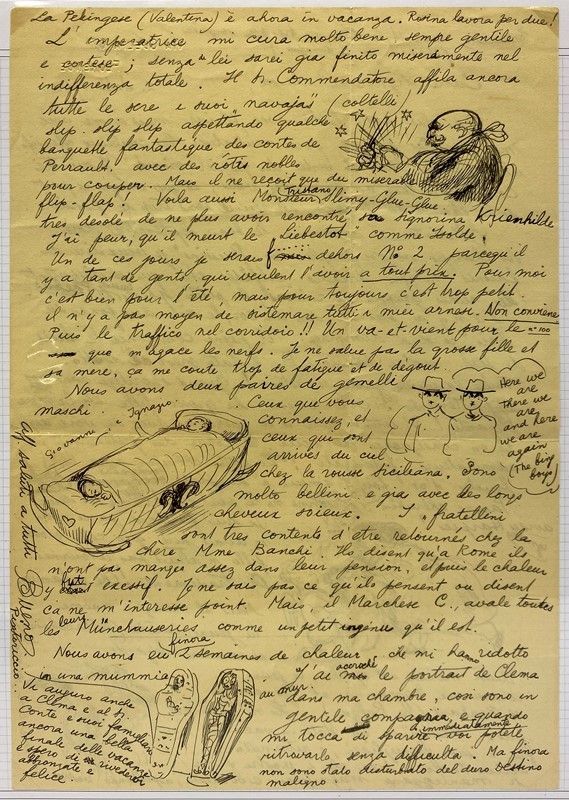 La Pekingese (Valentina) è ahora in vacanza. Rosina lavora per due!
L'imperatrice mi cura molto bene, sempre gentile
e cortese; senza lei sarei gia finito miseramente nel
indifferenza totale. Il S. Commendatore affila ancora
tutte le sere i suoi "navajas" (coltelli)
slip. slip slip aspettando qualche
banquette fantastique des contes de
Perrault. avec des rôtis nobles
pour couper. Mais il ne reçoit que du miserable
flip-flap! Voila aussi Monsieur Tristano Slimy-Glue-Glue
tres desolé de ne plus avoir rencontré sa Signorina Krienhilde
J'ai peur, qu'il meurt le "Liebestot" comme Isolde.
Un de ces jours je serais dehors Nº 2 parcequ'il
y a tant de gents qui veulent l'avoir a tout prix. Pour moi
c'est bien pour l'été, mais pour toujours c'est trop petit.
il n'y a pas moyen de sistemare tutti i miei arnesi. Non conviene
Puis le traffico nel corridoio!! Un va-et-vient pour le nº 100
que m'agace les nerfs. Je ne salue pas la grosse fille et
sa mere, ça me coute trop de fatigue et de degout.
Nous avons deux paires de gemelli
maschi.
Giovanni e Ignazio.
Ceux que vous
connaissez, et
ceux qui sont
arrivés du ciel
chez la rousse Siciliana. Sono
molto bellini e gia avec des longs
cheveux soieux. I "fratellini
sont tres contents d'etre retournés chez la
chère Mme Banchi. Ils disent qu'a Rome ils
n'ont pas manges assez dans leur pension, et puis le chaleur
y excessif. Je ne sais pas ce qu'ils pensent ou disent
ça ne m'interesse point. Mais, il Marchese C., avale toutes
les leurs Münchauseries comme un petit ingenu qu'il est.
Here we
are
There we
are
and here
we are
again
(The big
boys)
Nous avons eu finora 2 semaines de chaleur, che mi hanno ridotto
in una mummia
J'ai accroché le portrait de Clema
au mur.
dans ma chambre, cosi sono in
gentile compagnia, e quando
mi tocca di sparire immediatamente voi potete
ritrovarlo senza difficulta. Ma finora
non sono stato disturbato del duro Destino
maligno.
Vi auguro anche
a Clema e al S.
Conte e suoi famigliari
ancora una bella
finale delle vacanze
e spero di rivedervi
abbronzate e
felice.
aff saluti a tutti